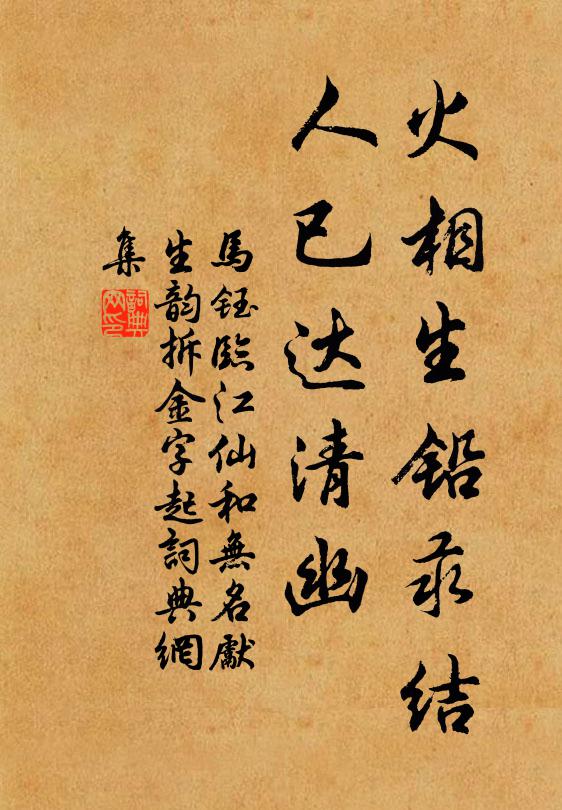 火相生铅汞结
人已达清幽
馬鈺臨江仙和無名獻
生韵拆金字起詞典網
集
詞典網印